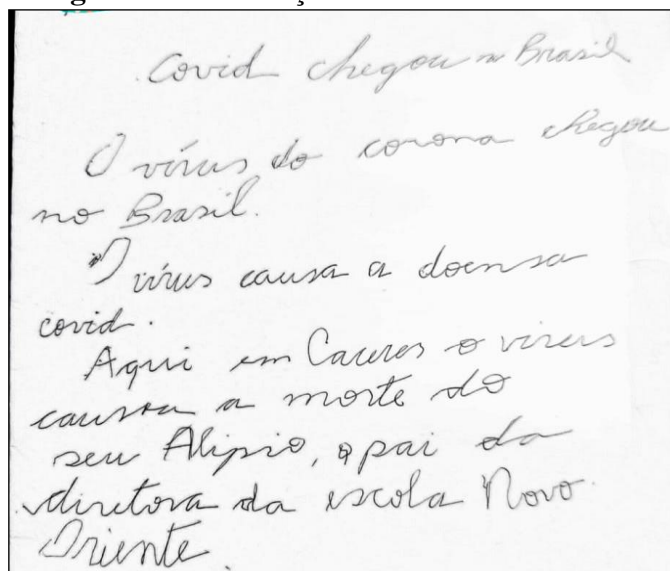 Covid chegou n Brasil
O vírus do corona chegou
no Brasil.
O vírus causa a doensa
covid.
Aqui em Caceres o virus
causou a morte do
seu Alipio, o pai da
diretora da escola Novo
Oriente.